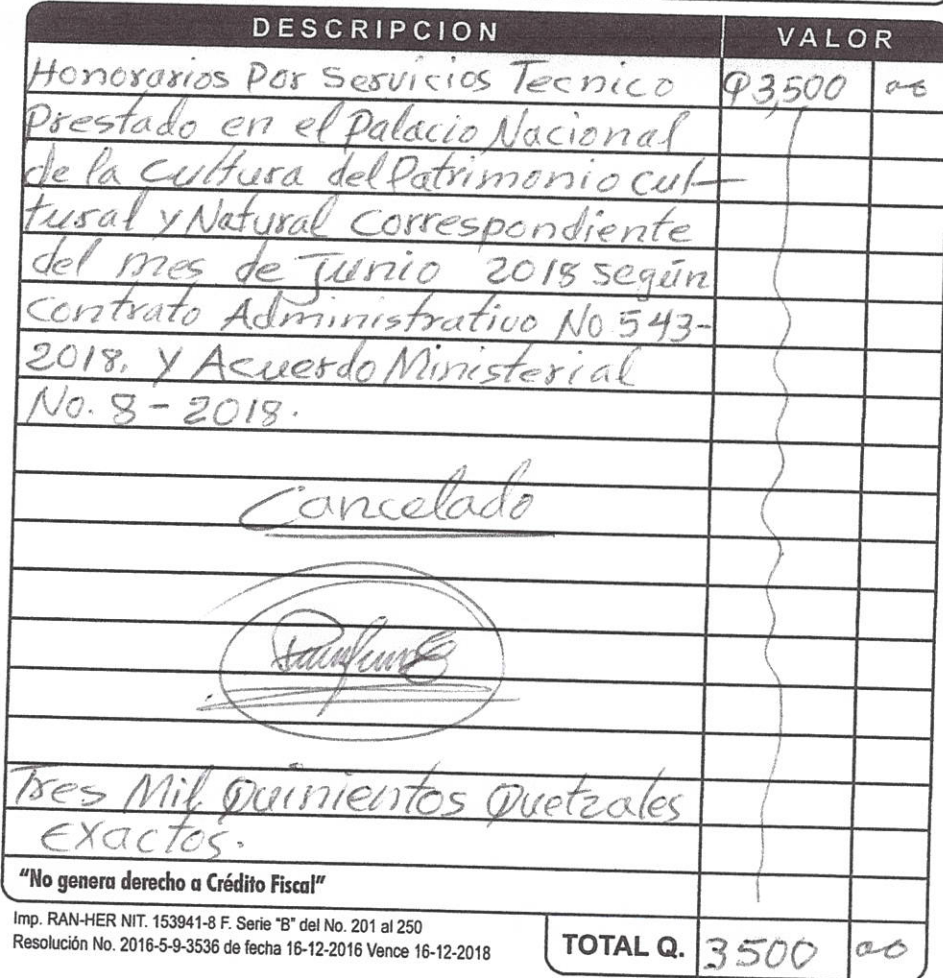 DESCRIPCION VALOR
Honorarios Por Servicios Tecnico Q3,500 00
Prestado en el Palacio Nacional
de la Cultura del Patrimonio cul-
tural y Natural correspondiente
del mes de Junio 2018 según
contrato Administrativo No 543-
2018. y Acuerdo Ministerial
No. 8-2018.
Cancelado
Tres Mil Quinientos Quetzales
Exactos.
"No genera derecho a Crédito Fiscal"
Imp. RAN-HER NIT. 153941-8 F. Serie "B" del No. 201 al 250
Resolución No. 2016-5-9-3536 de fecha 16-12-2016 Vence 16-12-2018
TOTAL Q. 3500 00